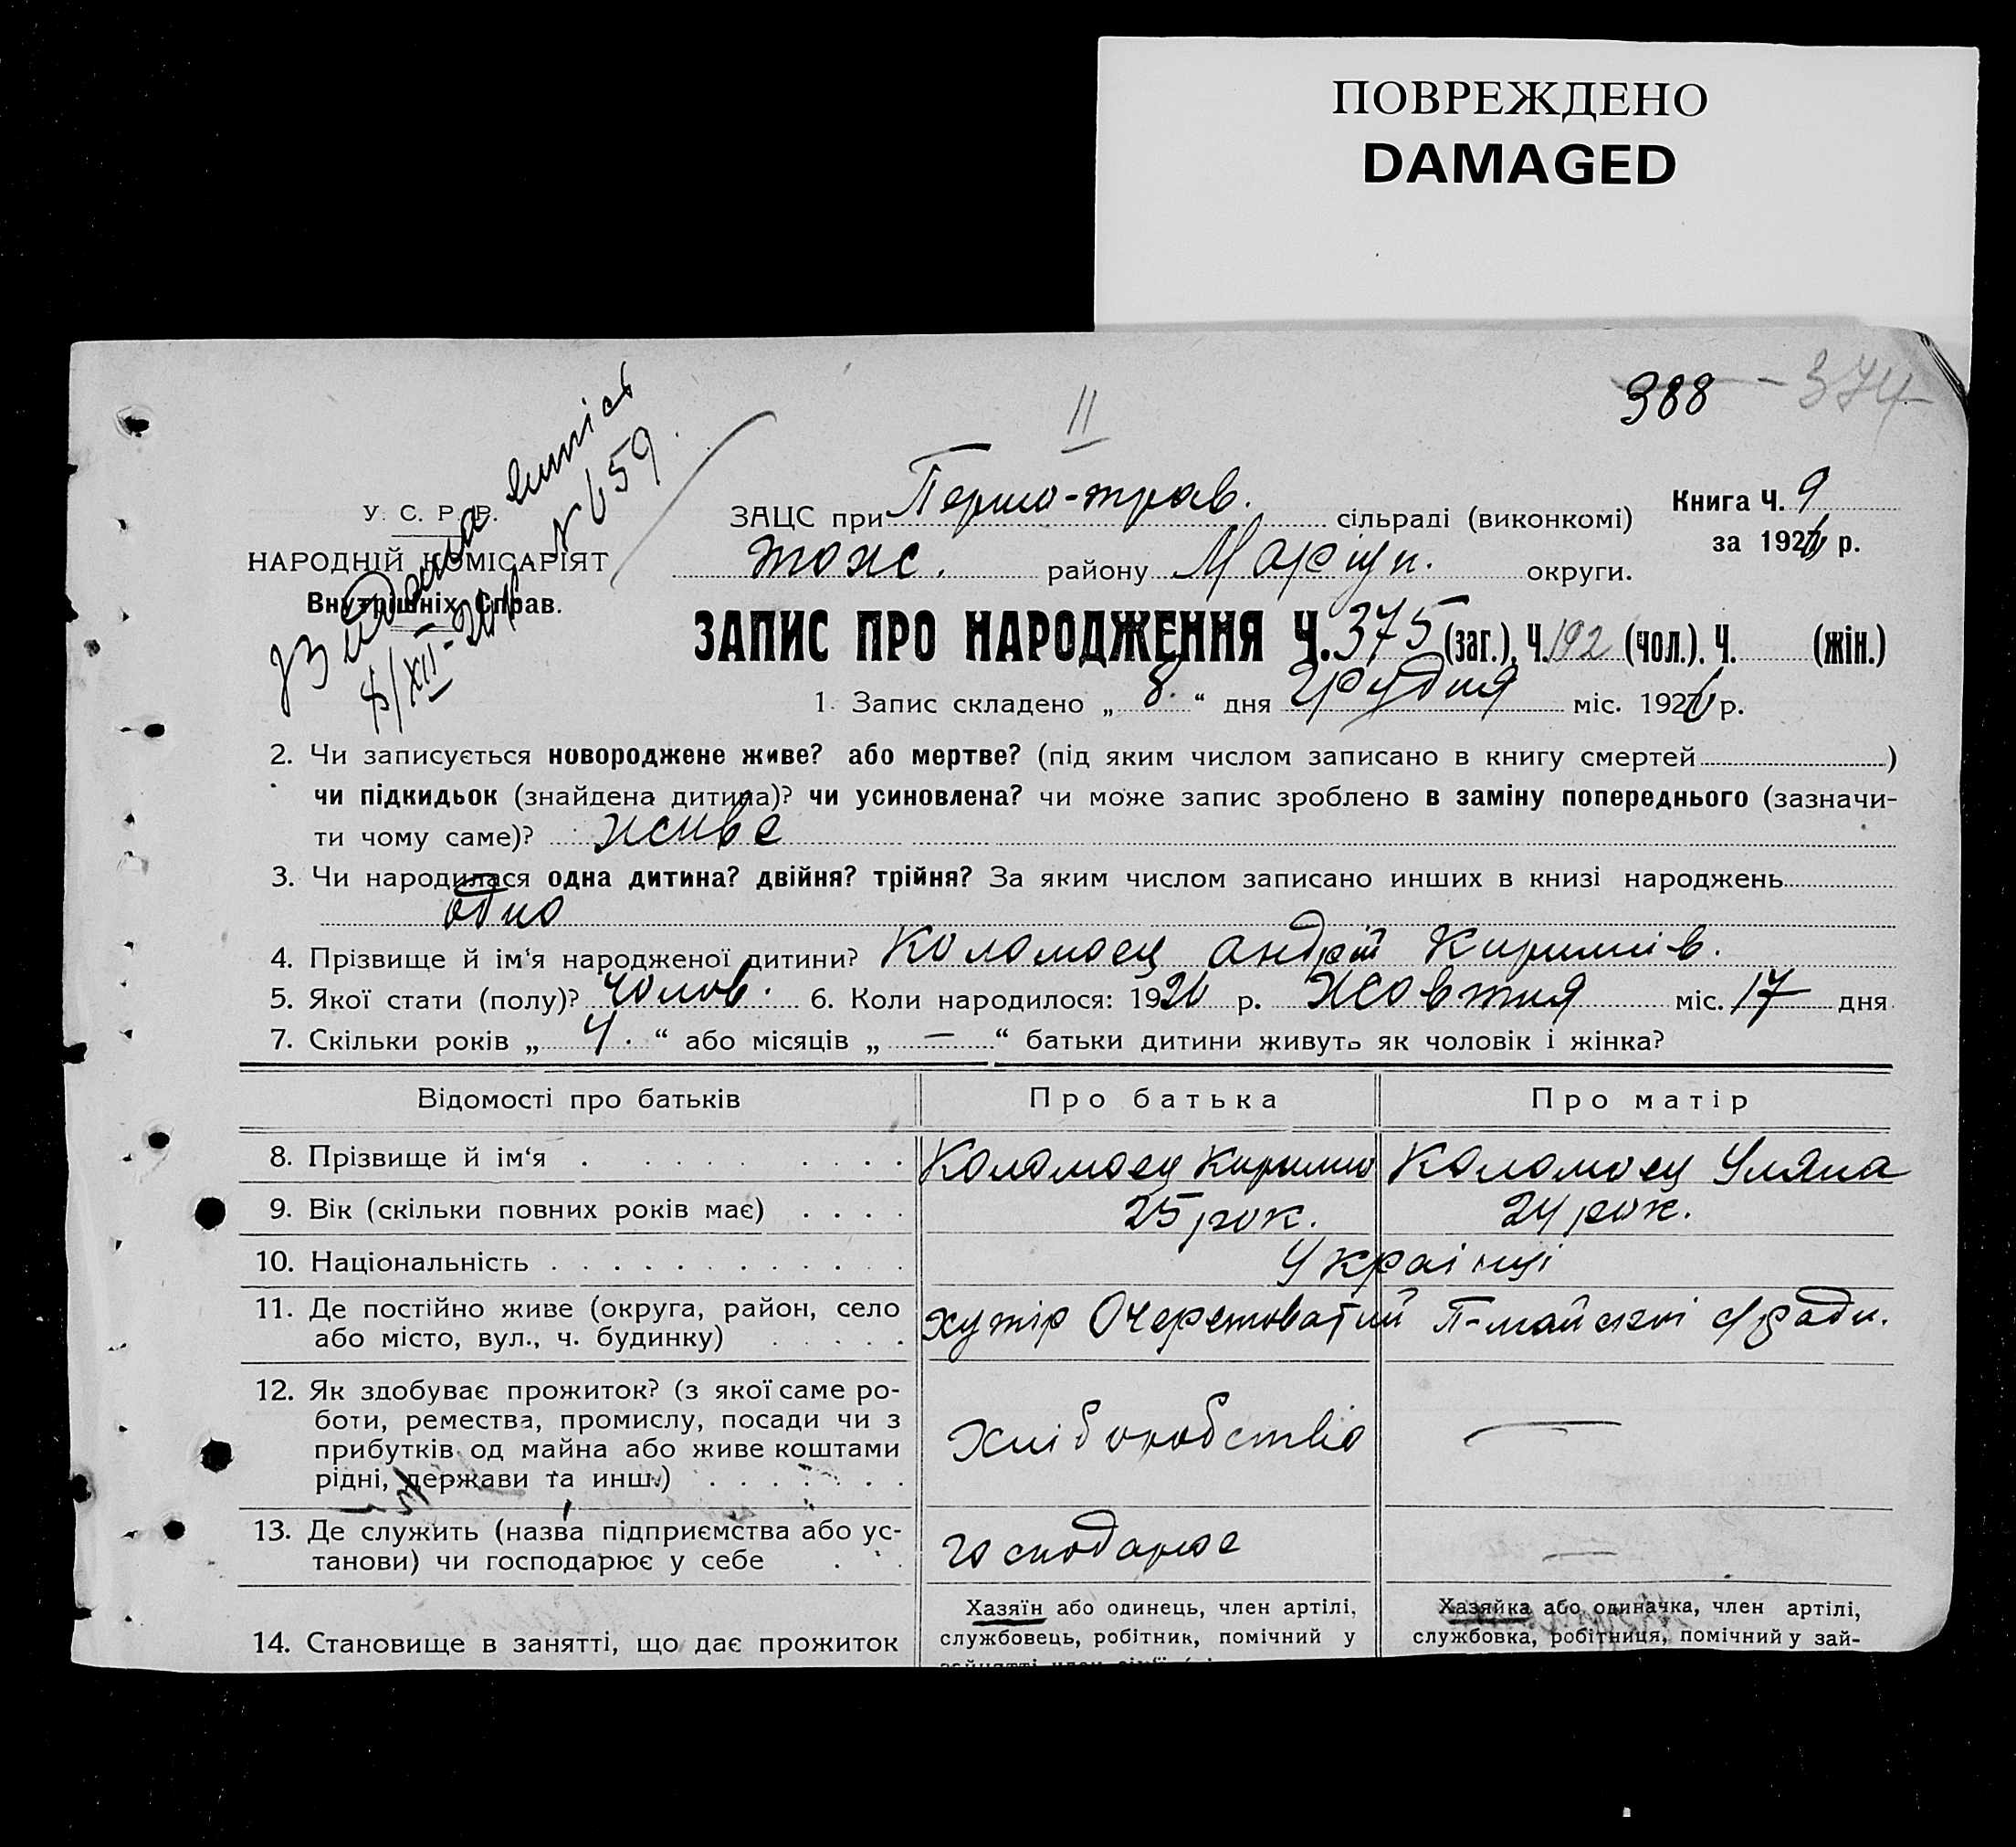 ПОВРЕЖДЕНО
DAMAGED
388 — 374
II
Видана випись
8/XII-26 р. № 659
У. С. Р. Р.
НАРОДНІЙ КОМІСАРІЯТ
Внутрішніх Справ.
ЗАЦС при Першо-трав. сільраді (виконкомі)
Книга Ч. 9
за 1926 р.
тож. району Маріуп. округи.
ЗАПИС ПРО НАРОДЖЕННЯ Ч. 375 (заг.), Ч. 192 (чол.). Ч. (жін.)
1. Запис складено „ 8. “ дня Грудня міс. 1926 р.
2. Чи записується новороджене живе? або мертве? (під яким числом записано в книгу смертей )
чи підкидьок (знайдена дитина)? чи усиновлена? чи може запис зроблено в заміну попереднього (зазначи-
ти чому саме)? живе
3. Чи народилася одна дитина? двійня? трійня? За яким числом записано инших в книзі народжень
одно
4. Прізвище й ім‘я народженої дитини? Коломоец Андрій Кирилів.
5. Якої стати (полу)? Чолов. 6. Коли народилося: 1926 р. Жовтня міс. 17 дня
7. Скільки років „ 4. “ або місяців „ — “ батьки дитини живуть як чоловік і жінка?
Відомості про батьків
Про батька
Про матір
8. Прізвище й ім‘я . . . . . . . . .
Коломоец Кирило
Коломоец Уляна
9. Вік (скільки повних років має) . . . .
25 рок.
24 рок.
10. Національність . . . . . . . . . . . .
Українці
11. Де постійно живе (округа, район, село
або місто, вул., ч. будинку) . . . . .
хутір Очеретоватий П-майської с/ради.
12. Як здобуває прожиток? (з якої саме ро-
боти, ремества, промислу, посади чи з
прибутків од майна або живе коштами
рідні, держави та инш.) . . . . . . .
Хліборобство
—
13. Де служить (назва підприємства або ус-
танови) чи господарює у себе . . .
господарює
—
14. Становище в занятті, що дає прожиток
Хазяїн або одинець, член артілі,
службовець, робітник, помічний у
Хазяйка або одиначка, член артілі,
службовка, робітниця, помічний у зай-